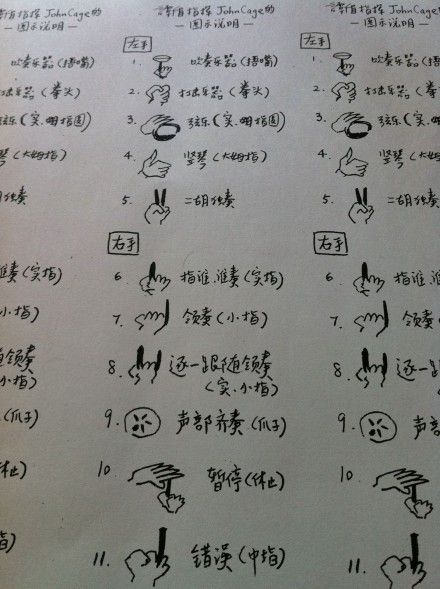 JohnCage的
—图示说明—
吹奏乐器(捂嘴)
打击乐器(拳头)
弦乐(实.姆指圈)
琴(大姆指)
胡独奏
谁奏(实指)
小指)
随领奏
实.小指)
(爪子)
休止)
指)
指挥 JohnCage的
—图示说明—
左手
1. 吹奏乐器(捂嘴)
2. 打击乐器(拳头)
3. 弦乐(实.姆指圈)
4. 竖琴(大姆指)
5. 二胡独奏
右手
6. 指谁.谁奏(实指)
7. 领奏(小指)
8. 逐一跟随领奏
(实.小指)
9. 声部齐奏(爪子)
10. 暂停(休止)
11. 错误(中指)
指挥 JohnCage的
—图示说明—
左手
1. 吹奏乐器(捂嘴)
2. 打击乐器(拳头)
3. 弦乐(实.姆指圈)
4. 竖琴(大姆指)
5. 二胡独奏
右手
6. 指谁.谁
7. 领奏(
8. 逐一跟
9. 声部
10.
11.